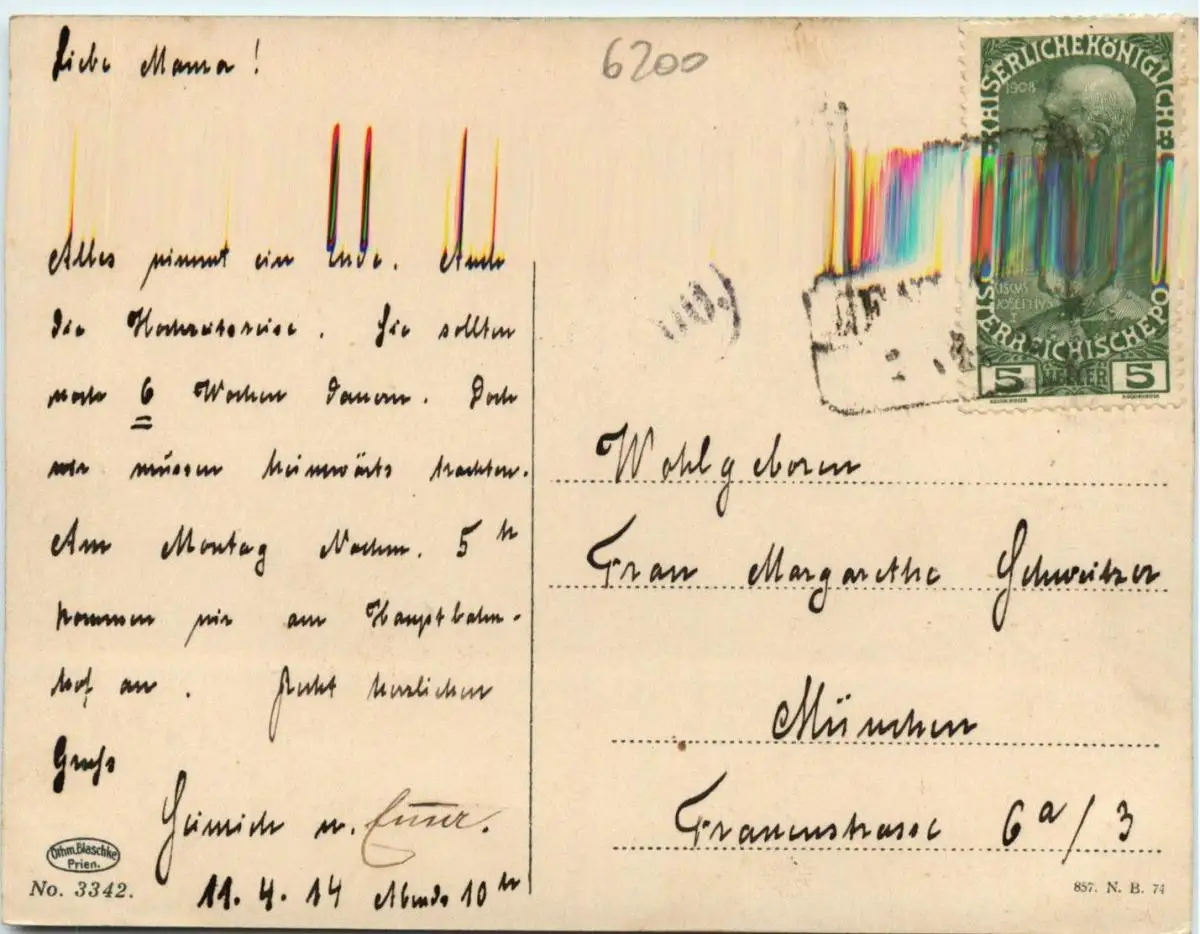 Liebe Mama!
Alles nimmt ein Ende. Auch
die Hochzeitsreise. Sie sollten
noch 6 Wochen dauern. Doch
wir müssen heimwärts trachten.
Am Montag Nachm. 5 h
kommen wir am Hauptbahn-
hof an. Recht herzlichen
Gruß
Heinrich u.
11.4.14 Abends 10 h
Othm. Blaschke
Prien.
No. 3342.
6200
KAISERLICHE KÖNIGLICHE
1908
ÖSTERREICHISCHE PO
5 HELLER 5
Wohlgeboren
Frau Margarethe Schweitzer
München
Frauenstrasse 6a/3
857. N. B. 74